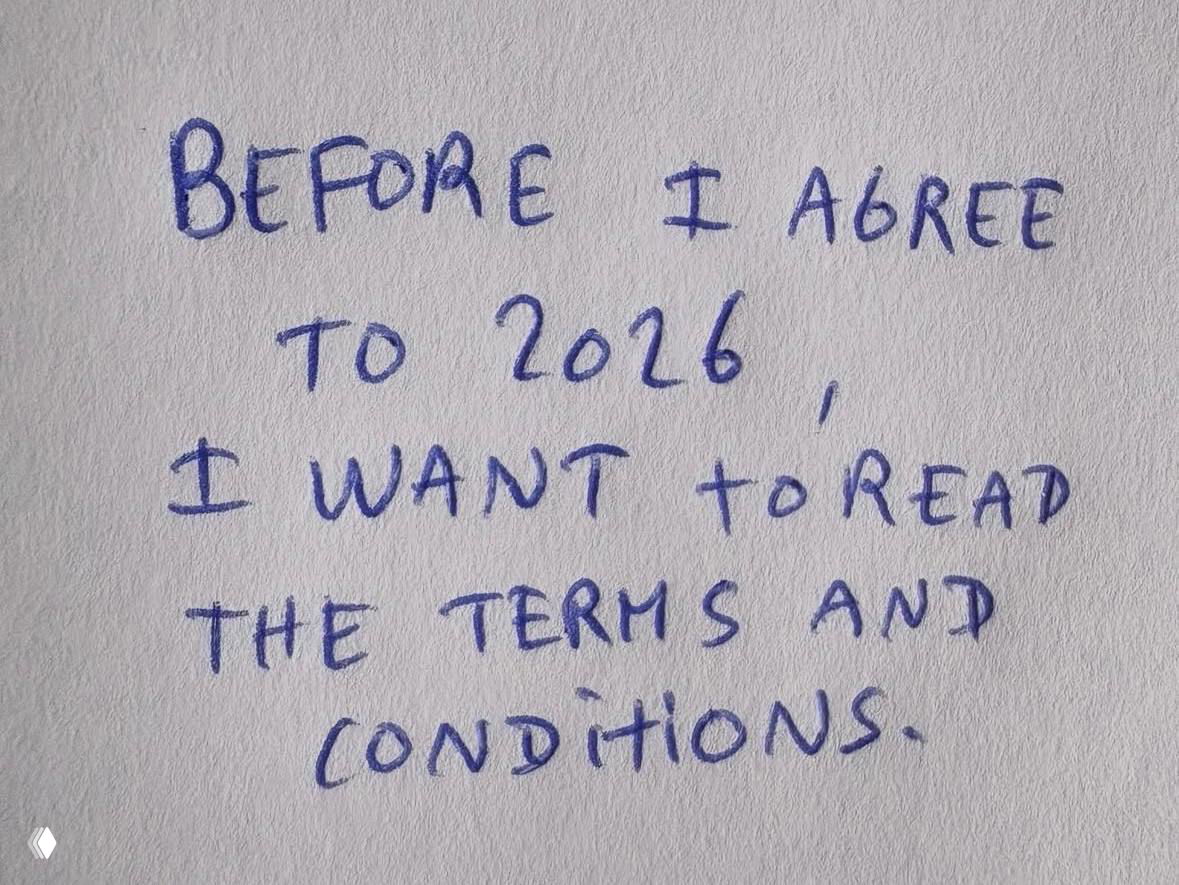 BEFORE I AGREE
TO 2026,
I WANT to READ
THE TERMS AND
CONDiTiONS.